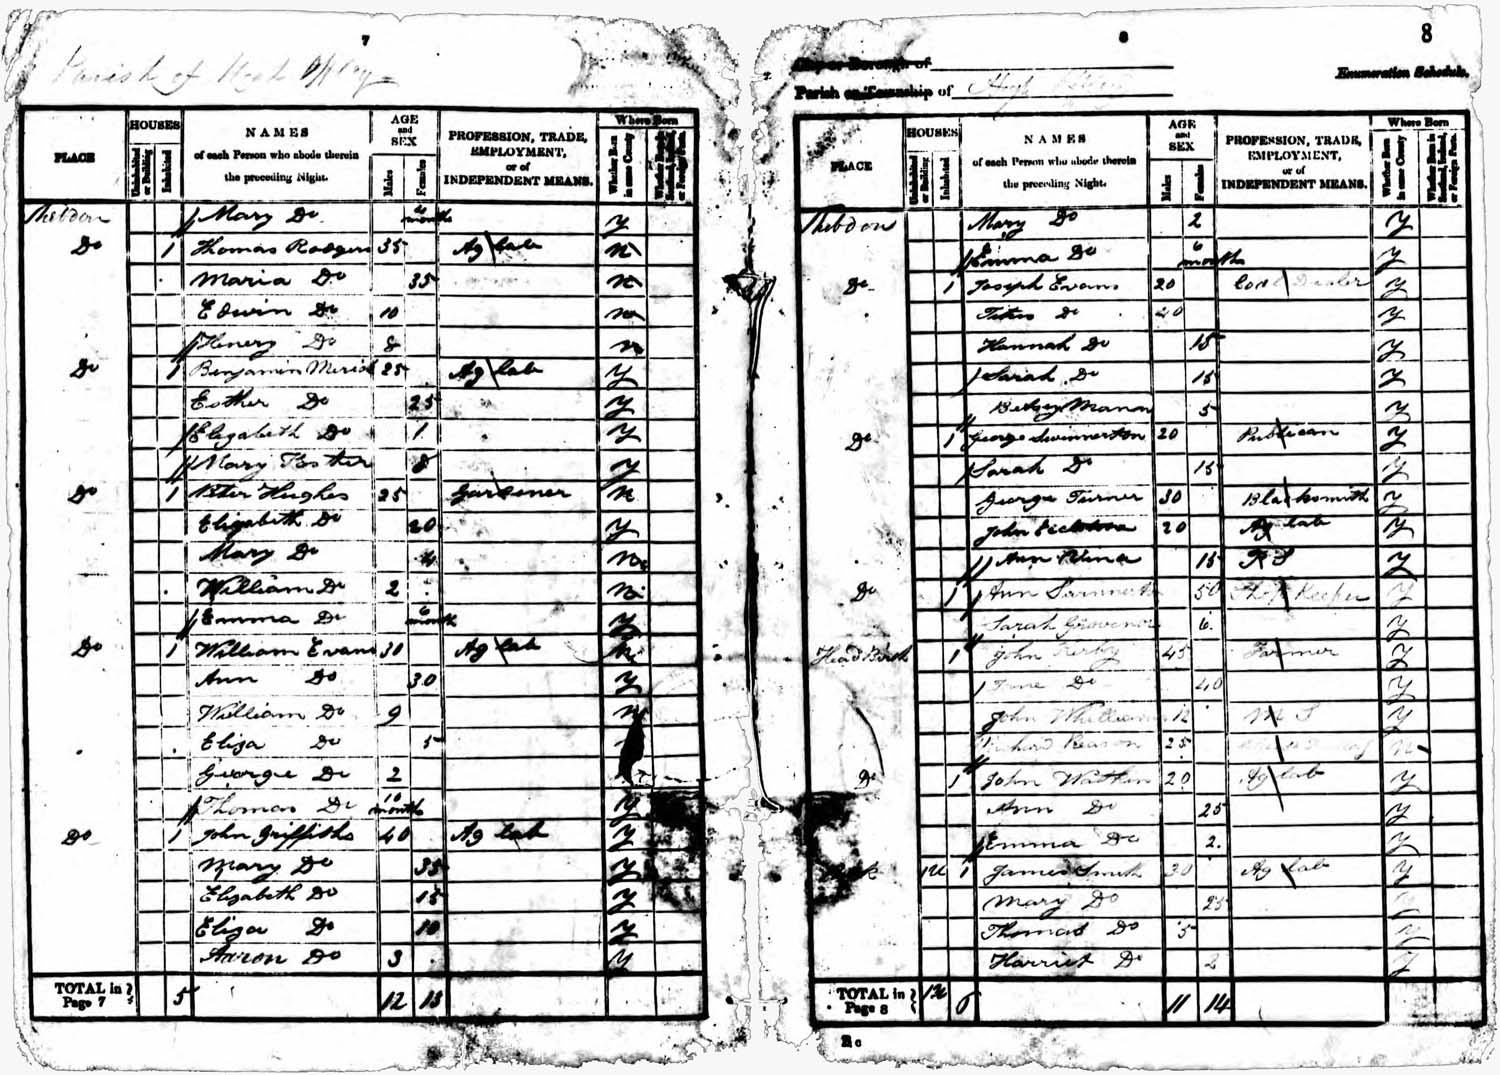 7
Parish of High Offley
HOUSES
AGE and SEX
Where Born
PLACE
Uninhabited or Building
Inhabited
NAMES of each Person who abode therein the preceding Night.
Males
Females
PROFESSION, TRADE, EMPLOYMENT, or of INDEPENDENT MEANS.
Whether Born in same County
Whether Born in Scotland, Ireland, or Foreign Parts.
Shebdon // Mary Do 4 months y
Do 1 Thomas Rodgers 35 Ag lab n
Maria Do 35 n
Edwin Do 10 n
// Henery Do 8 n
Do 1 Benjamin 25 Ag lab y
Esther Do 25 y
/ Elizabeth Do 1 y
// Mary Foster 8 y
Do 1 Peter Hughes 25 Gardener n
Elizabeth Do 20 y
Mary Do 4 n
William Do 2 n
// Emma Do 6 month y
Do 1 William Evans 30 Ag lab n
Ann Do 30 y
William Do 9 n
Eliza Do 5
George Do 2
// Thomas Do 10 months y
Do 1 John Griffiths 40 Ag lab y
Mary Do 35 y
Elizabeth Do 15 y
Eliza Do 10 y
Aaron Do 3 y
TOTAL in Page 7 5 12 13
8
8
City or Borough of
Enumeration Schedule.
Parish or Township of High Offley
HOUSES
AGE and SEX
Where Born
PLACE
Uninhabited or Building
Inhabited
NAMES of each Person who abode therein the preceding Night.
Males
Females
PROFESSION, TRADE, EMPLOYMENT, or of INDEPENDENT MEANS.
Whether Born in same County
Whether Born in Scotland, Ireland, or Foreign Parts.
Shebdon Mary Do 2 y
// Emma Do 6 months y
Do 1 Joseph Evans 20 Coal Dealer y
Do 40 y
Hannah Do 15 y
/ Sarah Do 15 y
// Betsy 5 y
Do 1 George Swinnerton 20 Publican y
/ Sarah Do 15 y
George Turner 30 Blacksmith y
John 20 Ag lab y
// Ann 15 F S y
Do 1 / Ann 50 Shop Keeper y
// Sarah Grovenor 6 y
1 John 45 Farmer y
/ Jane Do 40 y
John 12 M S y
// Richard 25 n
Do 1 John 20 Ag lab y
Ann Do 25 y
// Emma Do 2 y
1 James Smith 30 Ag lab y
Mary Do 25
Thomas Do 5 y
Harriet Do 2 y
TOTAL in Page 8 6 11 14